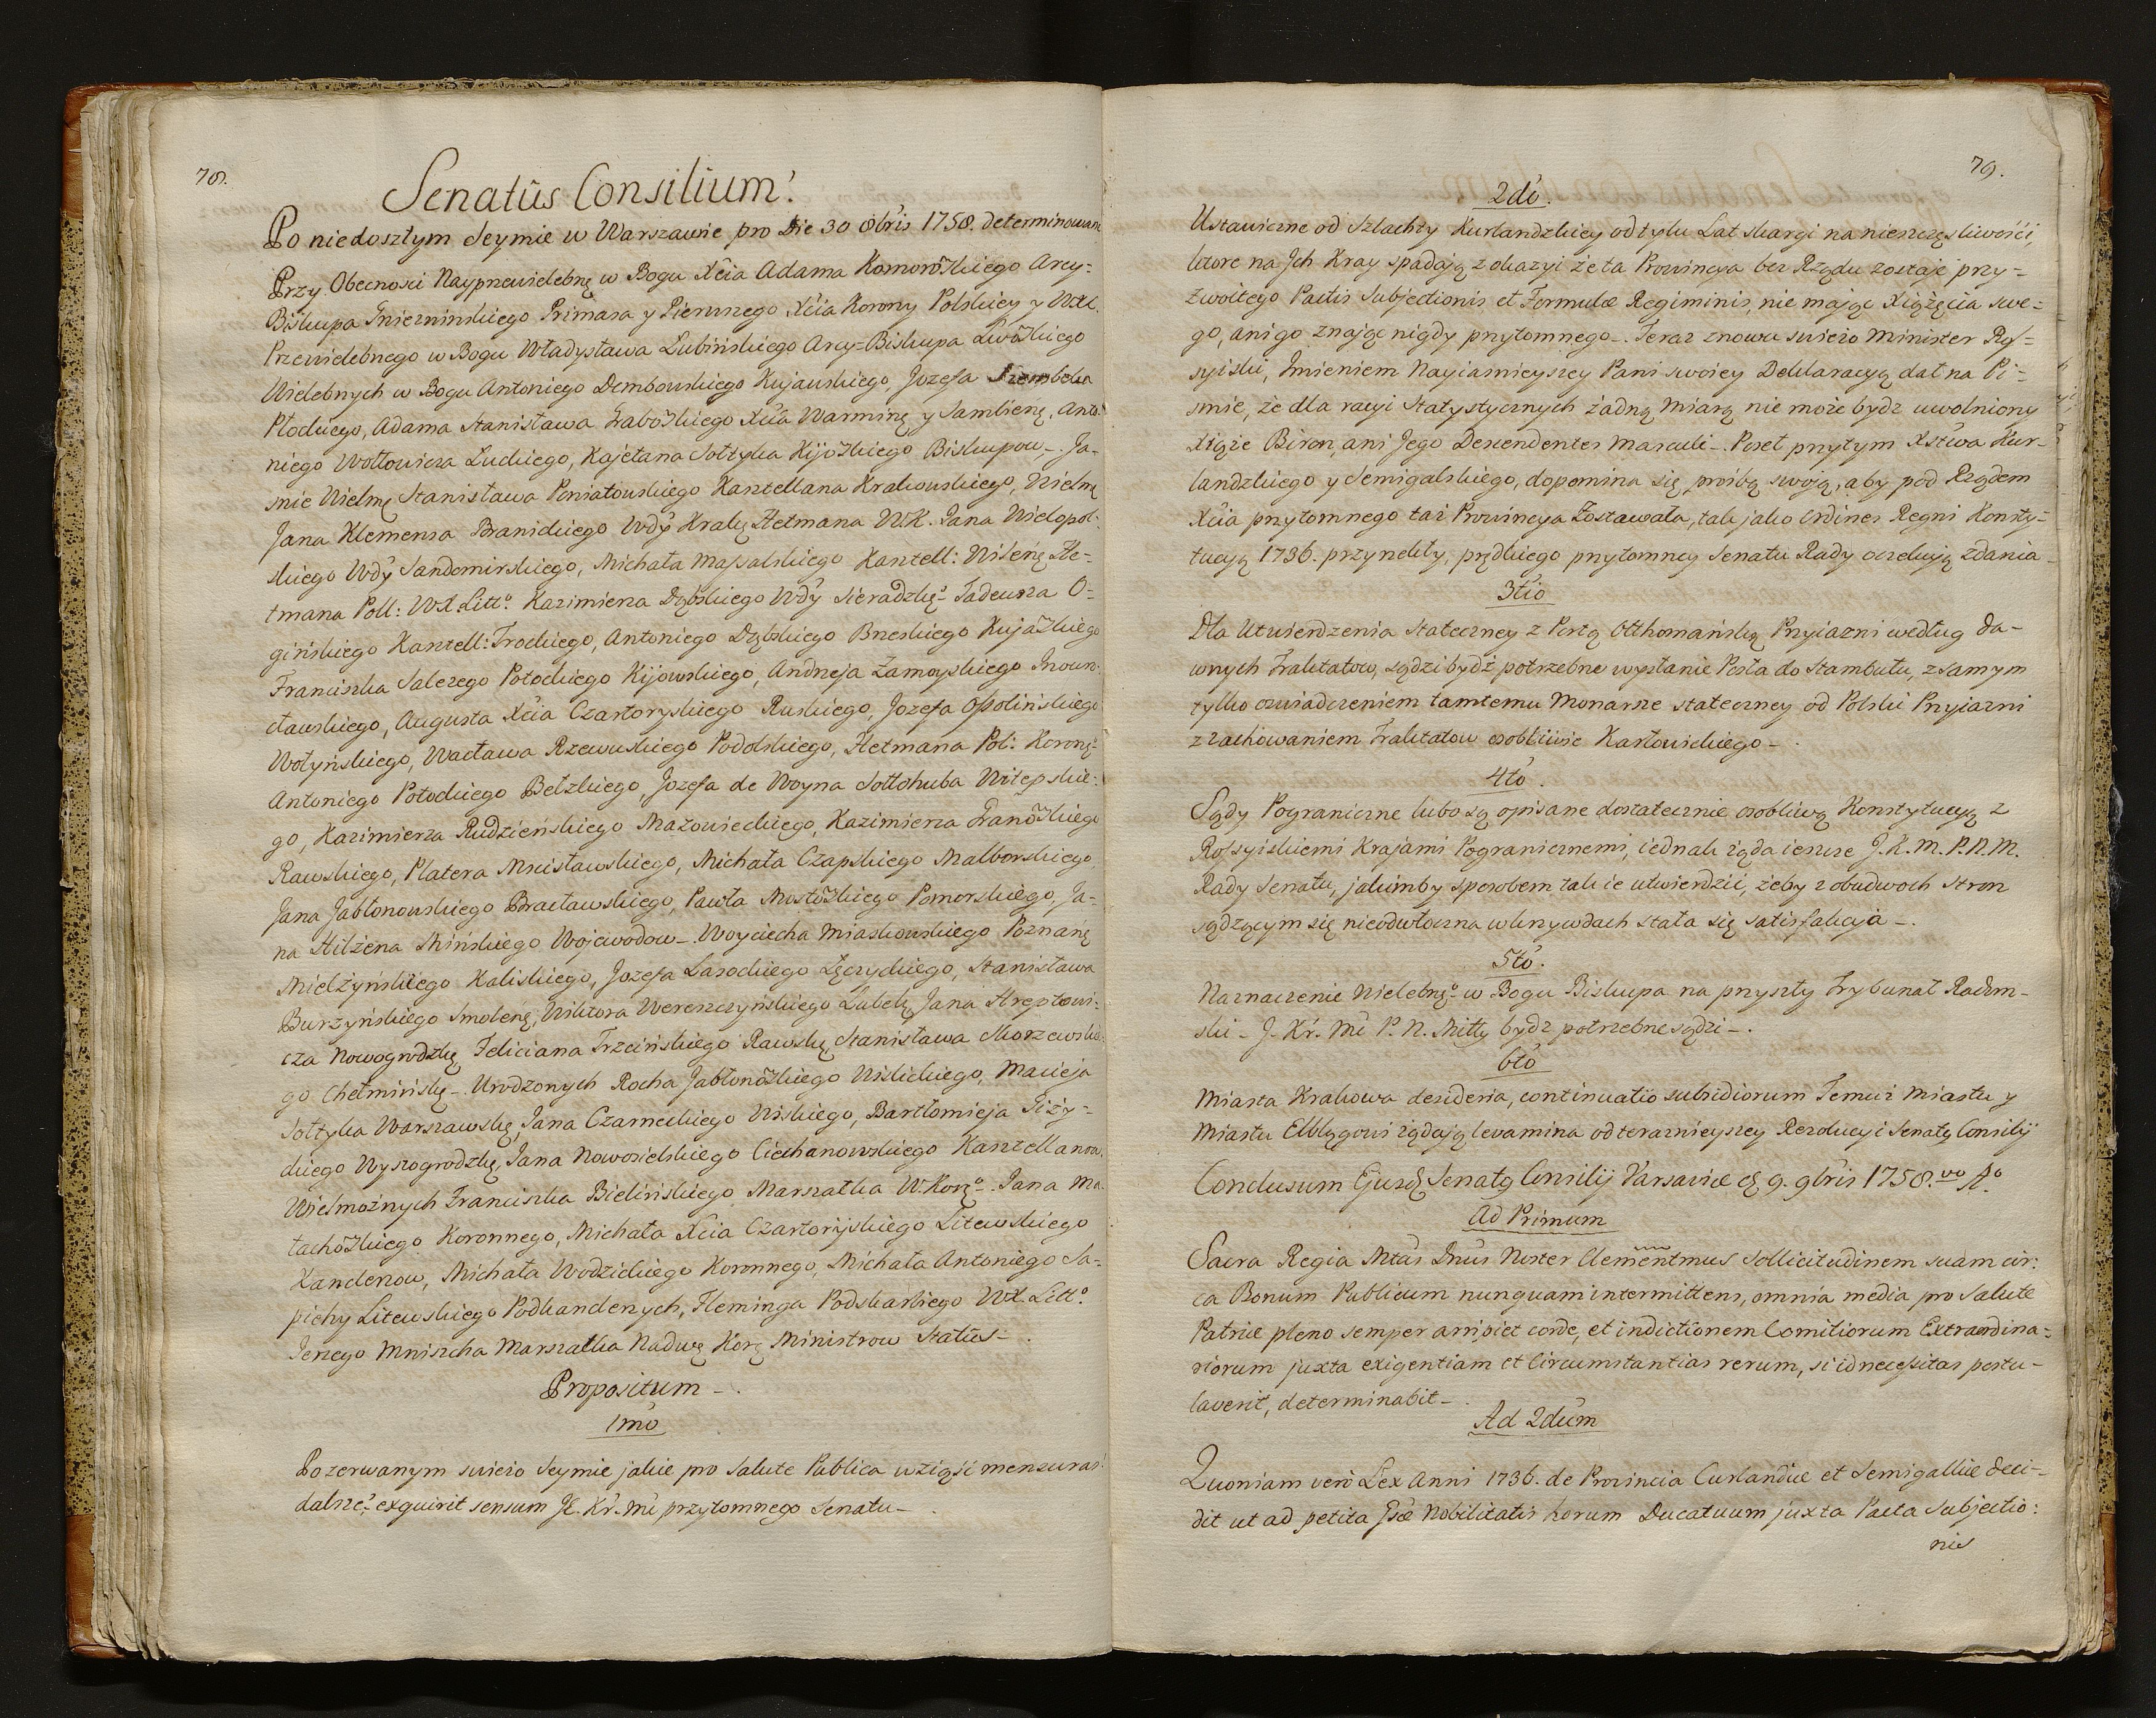 78.
Senatûs Consilium.
Po niedoszłym Seymie w Warszawie pro Die 30 8bris 1758. determinowane
Przy Obecnosci Nayprzewielebnę w Bogu Xcia Adama Komorowskiego Arcy=
Biskupa Gniezninskiego Primasa y Pierwszego Xcia Korony Polskiey y WXL.
Przewielebnego w Bogu Władysława Łubińskiego Arcy=Biskupa Lwoskiego
Wielebnych w Bogu Antoniego Dembowskiego Kujawskiego, Jozefa Szembeka
Płockiego, Adama Stanisława Graboskiego Xcia Warminę y Sambienę, Anto=
niego Wołłowicza Łuckiego, Kajetana Sołtyka Kijoskiego Biskupow_. Ja-
snie Wielmę Stanisława Poniatowskiego Kasztellana Krakowskiego, Wielmę
Jana Klemensa Branickiego Wdy Krakę Hetmana W.K. Jana Wielopol=
skiego Wdy Sandomirskiego, Michała Massalskiego Kasztell: Wilenę He=
tmana Poll: WX Litto. Kazimierza Dąbskiego Wdy Sieradzkę. Tadeusza O=
gińskiego Kasztell: Trockiego, Antoniego Dąbskiego Brzeskiego Kujaskiego
Franciszka Salezego Potockiego Kijowskiego, Andrzeja Zamoyskiego Inowro=
cławskiego, Augusta Xcia Czartoryskiego Ruskiego, Jozefa Ossolińskiego
Wołyńskiego, Wacława Rzewuskiego Podolskiego, Hetmana Pol: Koronę.
Antoniego Potockiego Bełzkiego, Jozefa de Woyna Sołłohuba Witepskie=
go, Kazimierza Rudzieńskiego Mazowieckiego, Kazimierza Granoskiego
Rawskiego, Platera Mscisławskiego, Michała Czapskiego Malborskiego,
Jana Jabłonowskiego Bracławskiego, Pawła Mostoskiego Pomorskiego, Ja=
na Hilżena Mińskiego Wojewodow_. Woyciecha Miaskowskiego Poznanę
Mielżyńskiego Kaliskiego, Jozefa Lasockiego Łęczyckiego, Stanisława
Burzyńskiego Smolenę, Wiktora Wereszczyńskiego Lubelę, Jana Hreptowi=
cza Nowogrodzkę Feliciana Trzcińskiego Rawskę, Stanisława Skorzewskie=
go Chełmińskę_. Urodzonych Rocha Jabłonoskiego Wislickiego, Macieja
Sołtyka Warszawskę, Jana Czarneckiego Wiskiego, Bartłomieja Giży=
ckiego Wyszogrodzkę, Jana Nowosielskiego Ciechanowskiego Kasztellanow.
Wielmożnych Franciszka Bielińskiego Marszałka W. Korę.. Jana Ma=
łachoskiego Koronnego, Michała Xcia Czartoryskiego Litewskiego
Kanclerzow, Michała Wodzickiego Koronnego, Michała Antoniego Sa=
piehy Litewskiego Podkanclerzych, Fleminga Podskarbiego WX. Litto.
Jerzego Mniszcha Marszałka Nadwę Korę Ministrow Status_.
Propositum_.
1mo
Po zerwanym swieżo Seymie jakie pro Salute Publica wziąść menzuras
dalsze? exquirit sensum JE. Kr. Mć przytomnego Senatu_.
79.
2do.
Ustawiczne od Szlachty Kurlandzkiey od tylu Lat skargi na nieszczęsliwości,
ktore na Jch Kray spadają z okazyi że ta Prowincya bez Rządu zostaje przy=
zwoitego Pactis Subjectionis et Formulæ Regiminis, nie mając Xiążęcia swe=
go, ani go znając nigdy przytomnego_. Teraz znowu swieżo Minister Ros=
syiski, Jmieniem Nayiasnieyszey Pani swoiey Deklaracyą dał na Pi=
smie, że dla racyi Statystycznych żadną miarą nie może bydz uwolniony
Xiąże Biron, ani Jego Descendentes Masculi_. Poseł przytym Xstwa Kur=
landzkiego y Semigalskiego, dopomina się prośbą swoją, aby pod Rządem
Xcia przytomnego taż Prowincya Zostawała, tak jako Ordines Regni Konsty=
tucyą 1736. przyrzekły, prędkiego przytomney Senatu Rady oczekują zdania_
3tio
Dla Utwierdzenia Stateczney z Portą Otthomańską Przyiazni według da-
wnych Traktatow, sądzi bydź potrzebne wysłanie Posła do Stambułu, z samym
tylko oswiadczeniem tamtemu Monarsze stateczney od Polski Przyiazni
z zachowaniem Traktatow osobliwie Karłowickiego_.
4to.
Sądy Pograniczne lubo są opisane dostatecznie osobliwą Konstytucyą z
Rossyiskiemi Krajami Pogranicznemi, iednak żąda ieszcze J.K.M.P.N.M.
Rady Senatu, jakimby sposobem takie utwierdzić, żeby z obudwoch Stron
sądzącym się nieodwłoczna w krzywdach stała się satisfakcja_.
5to.
Naznaczenie Wielebnę. w Bogu Biskupa na przyszły Trybunał Radom-
ski_ J. Kr. Mć P. N. Miłł. bydz potrzebne sądzi_.
6to
Miasta Krakowa desideria, continuatio subsidiorum Temuż Miastu y
Miastu Elblągowi żądają levamina od teraznieyszey Rezolucyi Senatq Consilij
Conclusum Ejusd Senatq Consilij Varsaviæ d. 9. 9bris 1758.vo Ao.
Ad Primum
Sacra Regia Mtas Dnus Noster Clementmus Sollicitudinem suam cir:
ca Bonum Publicum nunquam intermittens, omnia media pro Salute
Patriæ pleno semper arripiet corde, et indictionem Comitiorum Extraordina=
riorum juxta exigentiam et Circumstantias rerum, si id necessitas postu-
laverit, determinabit_.
Ad 2dum
Quoniam verò Lex Anni 1736. de Provincia Curlandiæ et Semigalliæ deci-
dit ut ad petita Gsæ Nobilitatis horum Ducatuum juxta Pacta Subjectio:
nis